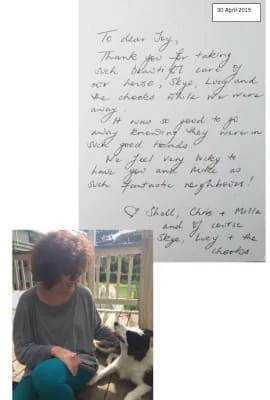 30 April 2019
To dear Joy,
Thank you for taking
such beautiful care of
our house, Skye, Lucy and
the chooks while we were
away.
It was so good to go
away knowing they were in
such good hands.
We feel very lucky to
have you and Mike as
such fantastic neighbours!
♡ Shell, Chris + Milla
and of course
Skye, Lucy + the
chooks.